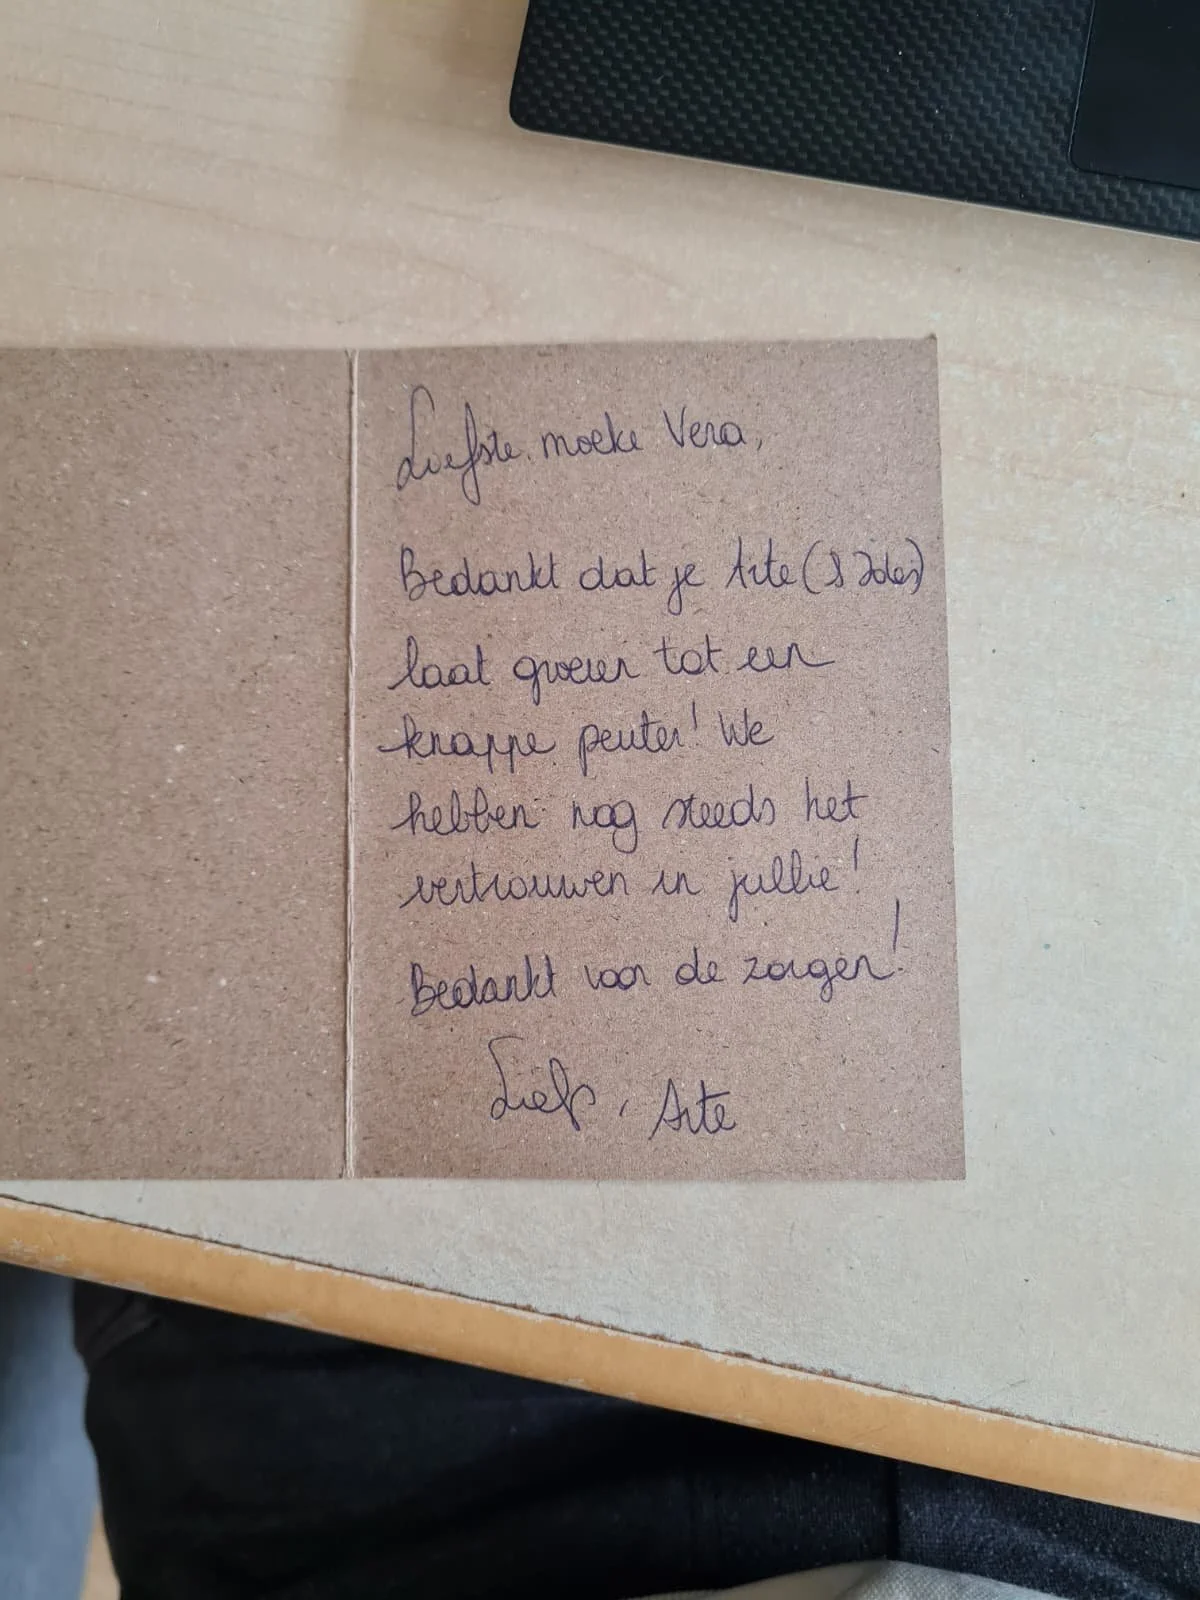 Liefste moeke Vera,
Bedankt dat je Arte (& Jules)
laat groeien tot een
knappe peuter! We
hebben nog steeds het
vertrouwen in jullie!
Bedankt voor de zorgen!
Liefs, Arte